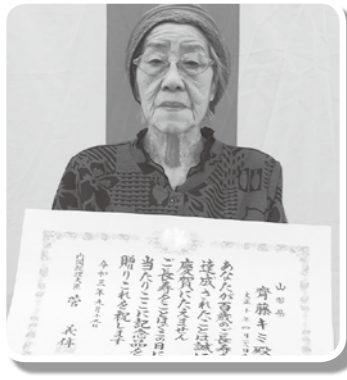 山形県
齊藤キミ殿
あなたが百歳のご長寿を
達成されたことは誠に
慶賀にたえません
ご長寿をことほぐ日に
当たりここに記念品を
贈りこれを祝します
令和三年九月十五日
内閣総理大臣 菅 義偉